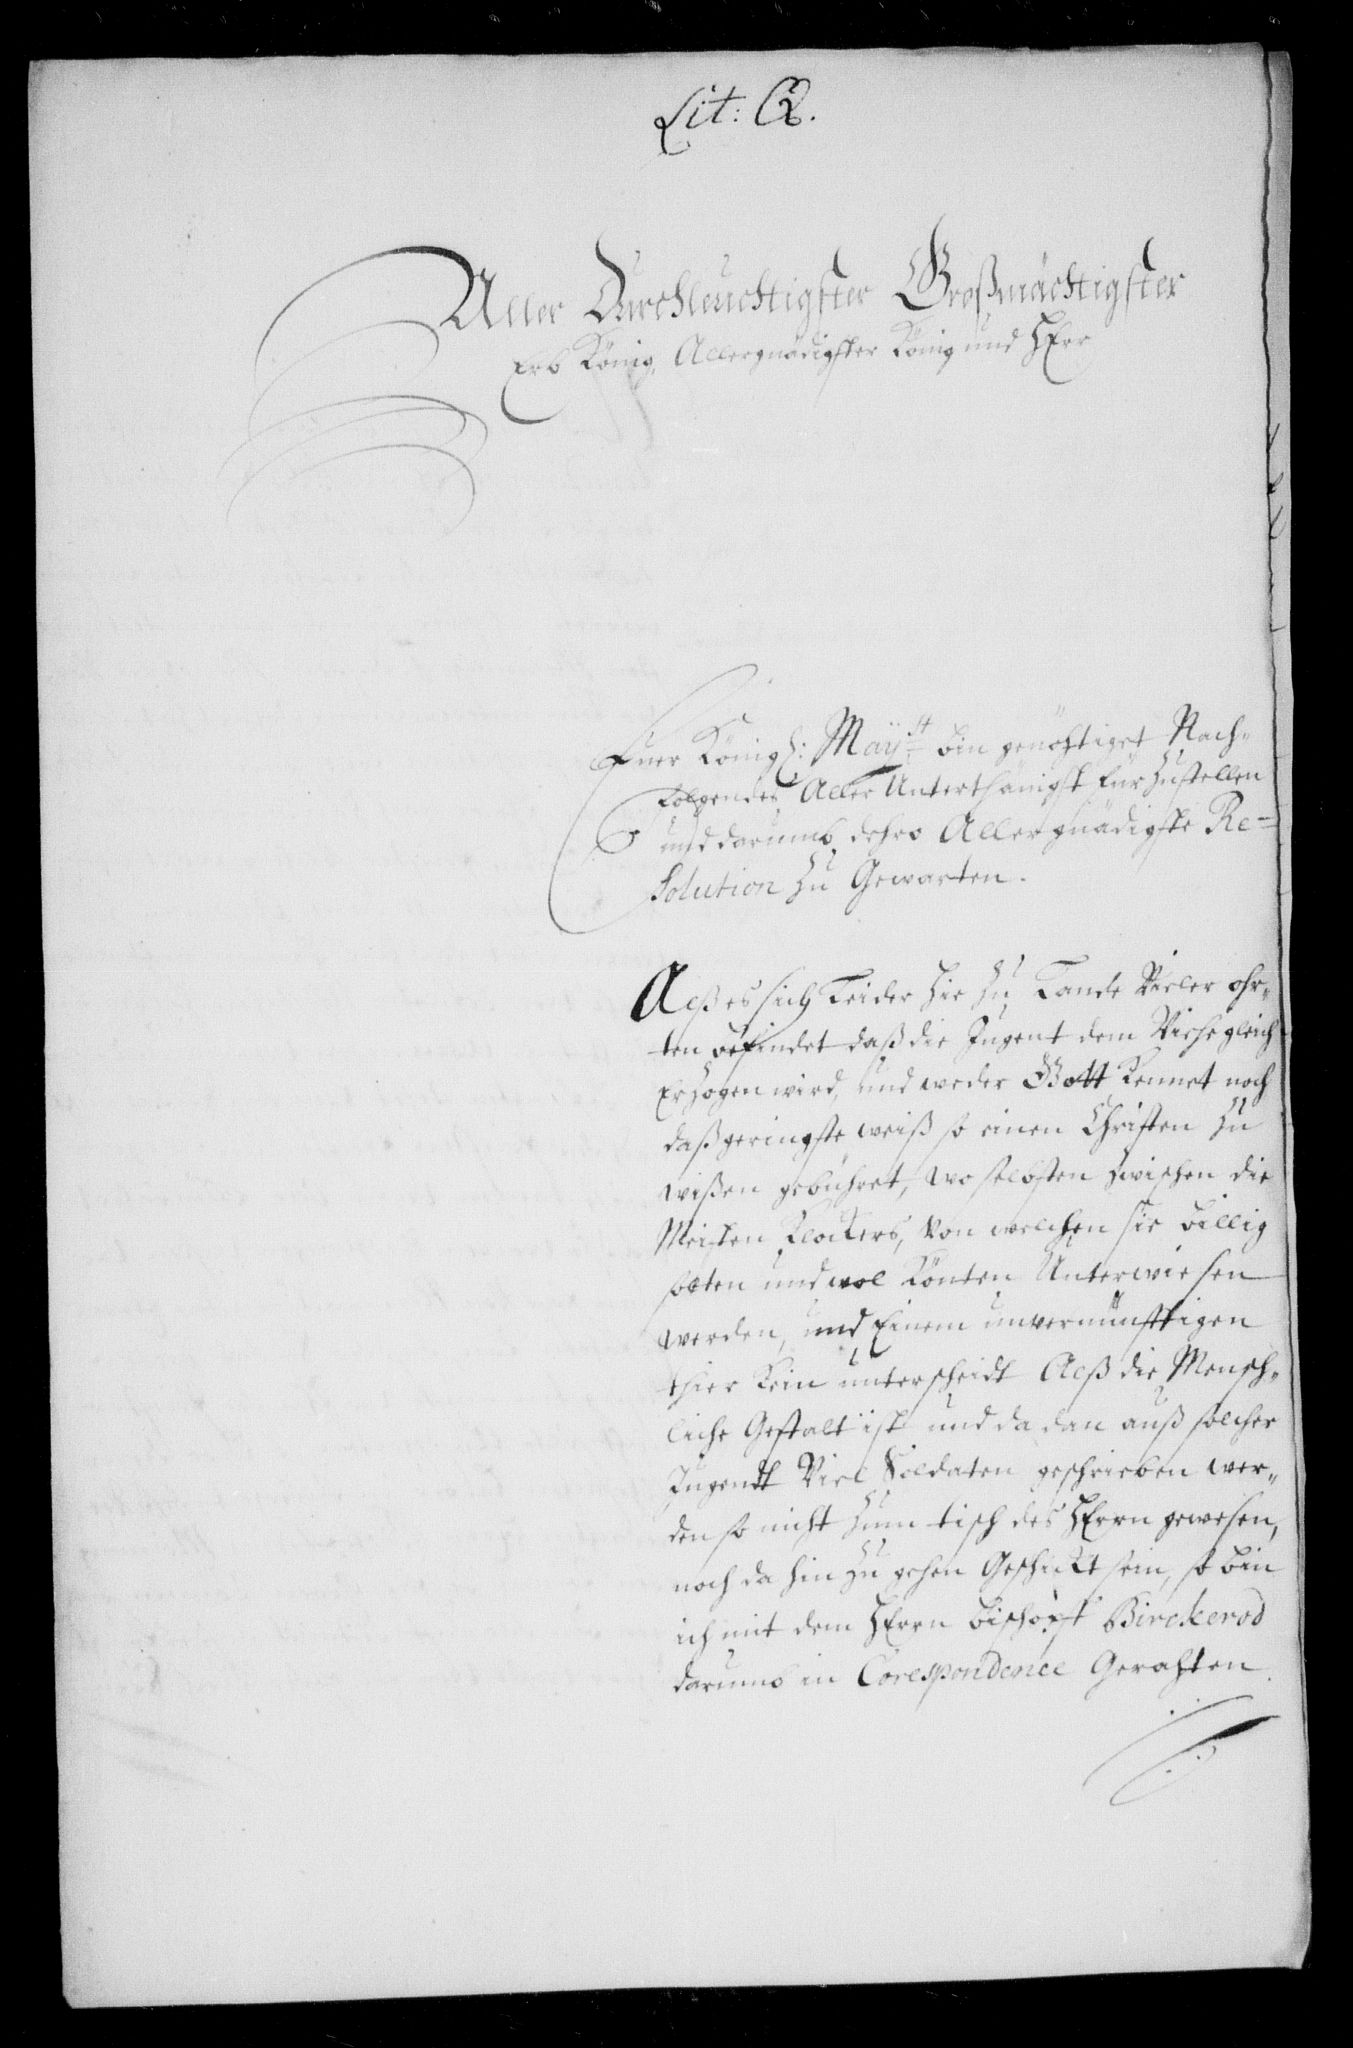 Lit: A.
Aller Durchleuchtigster Großmächtigster
Erb König, Allergnädigster König und HErr
Euer Königl: Maytt bin genöhtiget Nach-
folgendes Aller Unterthänigst fürzustellen
und darumb dehro Aller gnädigste Re-
solution zu Gewarten.
Alß es sich Leider hie zu Lande Vieler ohr-
ten befindet daß die Jugent dem Viehe gleich
Erzogen wird, und weder Gott kennet noch
daß geringste weiß so einen Christen zu
wißen gebühret, wo selbsten zwischen die
Meisten Klockers, von welchen sie billig
solten und wol könten Unterwiesen
werden, und Einem unvernünfftigen
thier kein unterscheidt Alß die Mensch-
liche Gestalt ist und da dan auß solcher
Jugendt Viel Soldaten geschrieben wer-
den so nicht zum tisch des HErrn gewesen,
noch da hin zu gehen Geschickt sein, so bin
ich mit dem HErrn bischopft Birckerod
darumb in Corespondence Gerahten